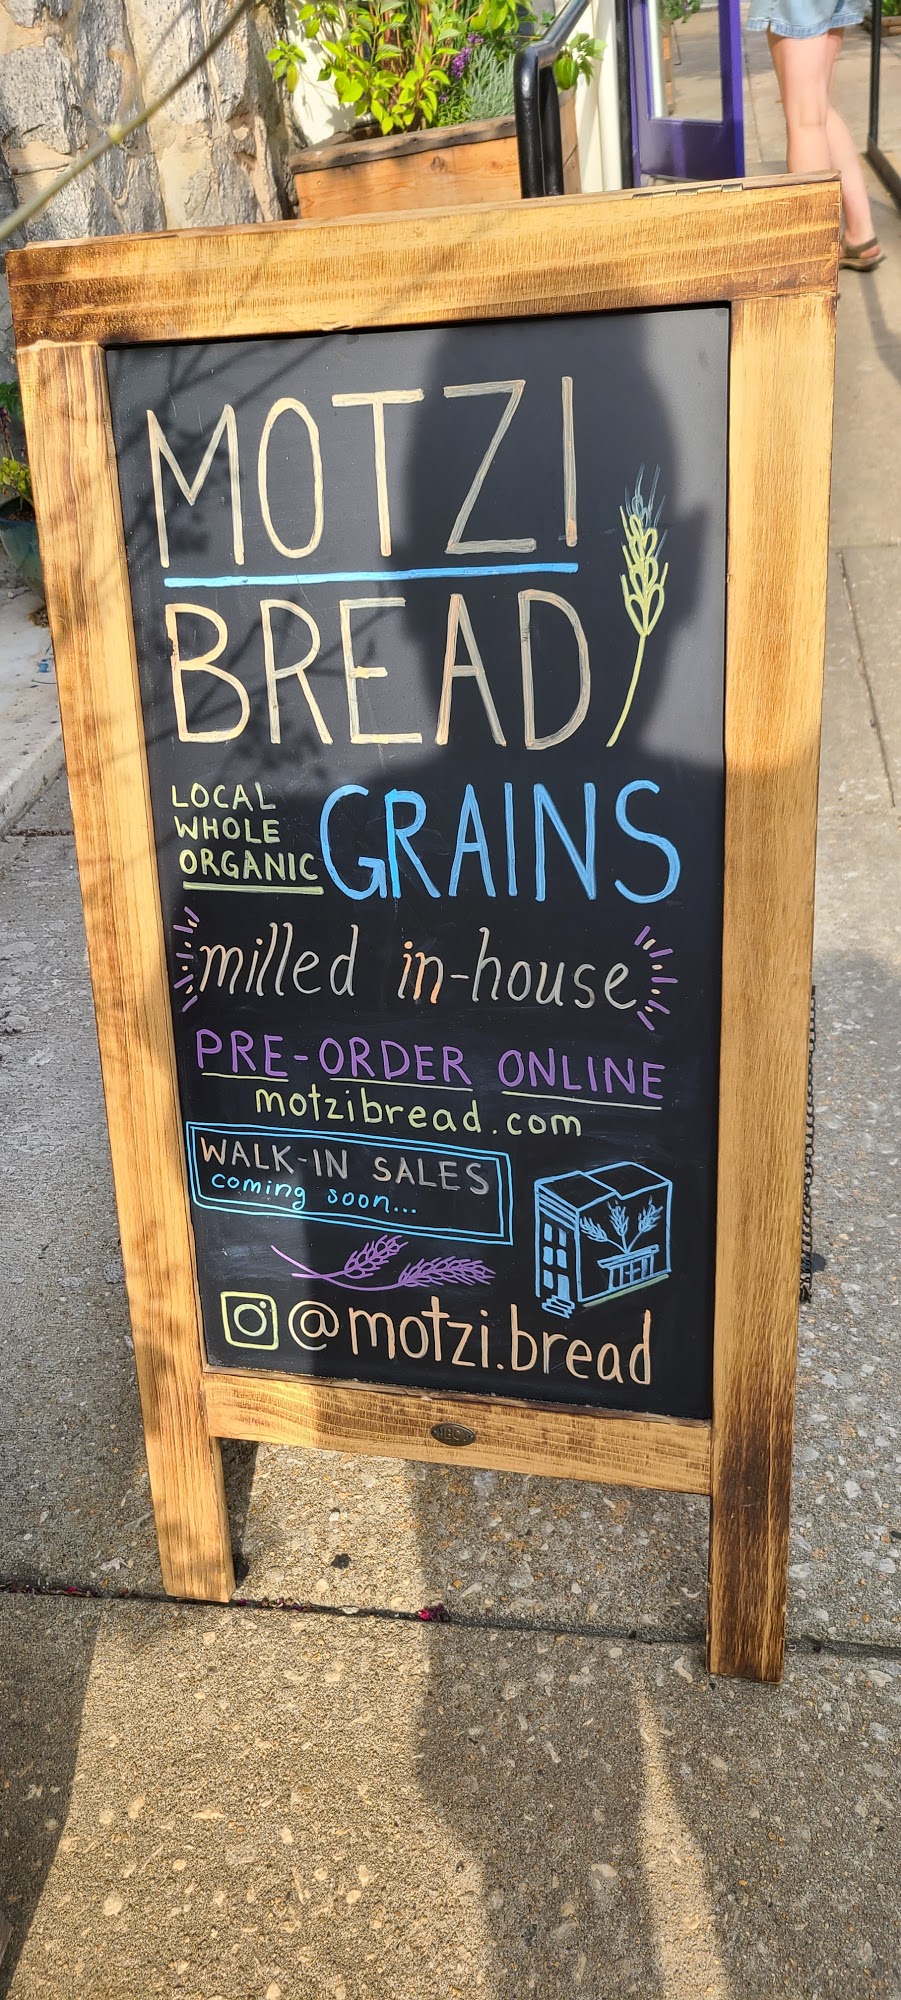 MOTZI
BREAD
LOCAL
WHOLE
ORGANIC
GRAINS
milled in-house
PRE-ORDER ONLINE
motzibread.com
WALK-IN SALES
coming soon...
@motzi.bread